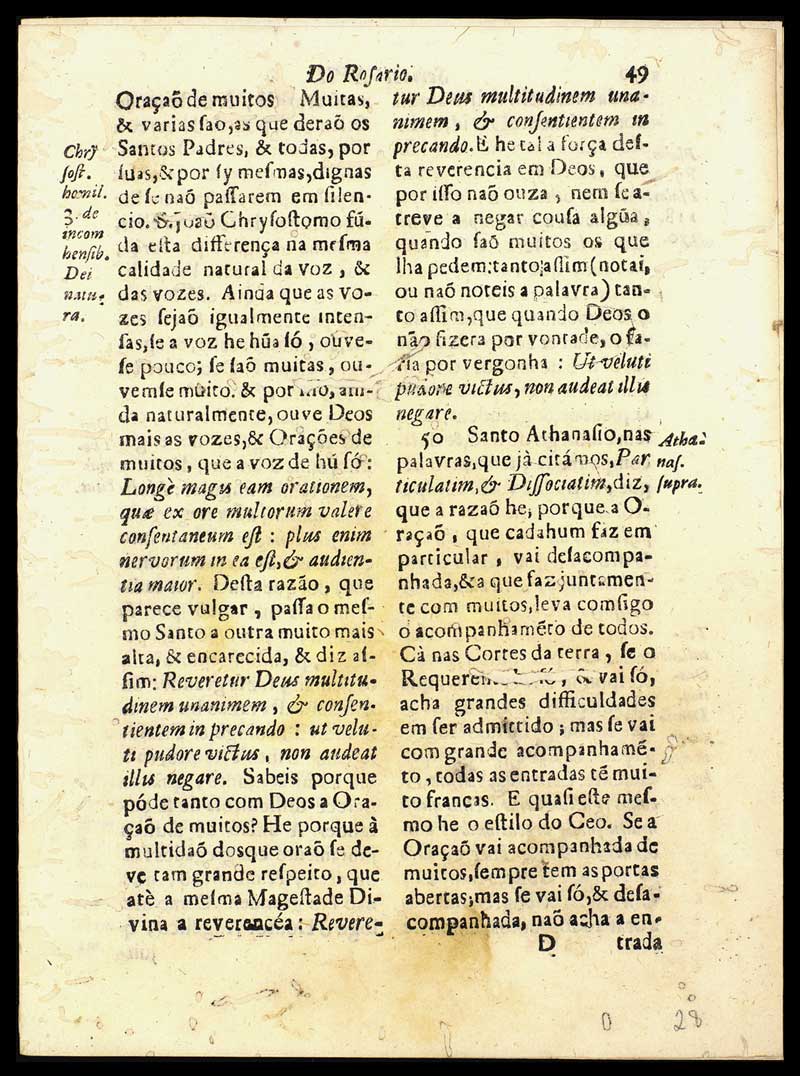 Do Roſario.
49
Oraçaõ de muitos Muitas,
& varias ſao, as que deraõ os
Santos Padres, & todas, por
ſuas, & por ſy meſmas, dignas
de ſe naõ paſſarem em ſilen-
cio. S. Joaõ Chryſoſtomo fũ-
da eſta differença na meſma
calidade natural da voz, &
das vozes. Ainda que as vo-
zes ſejaõ igualmente inten-
ſas, ſe a voz he hũa ſó, ouve-
ſe pouco; ſe ſaõ muitas, ou-
vemſe muito. & por iſſo, ain-
da naturalmente, ouve Deos
mais as vozes, & Orações de
muitos, que a voz de hũ ſó:
Longè magis eam orationem,
quæ ex ore multorum valere
conſentaneum eſt: plus enim
nervorum in ea eſt, & audien-
tia maior. Deſta razão, que
parece vulgar, paſſa o meſ-
mo Santo a outra muito mais
alta, & encarecida, & diz aſ-
ſim: Reveretur Deus multitu-
dinem unanimem, & conſen-
tientem in precando: ut velu-
ti pudore victus, non audeat
illis negare. Sabeis porque
póde tanto com Deos a Ora-
çaõ de muitos? He porque à
multidaõ dosque oraõ ſe de-
ve tam grande reſpeito, que
atè a meſma Mageſtade Di-
vina a reverencéa: Revere-
Chrÿ
ſoſt.
homil.
3. de
incom
henſib.
Dei
natu-
ra.
tur Deus multitudinem una-
nimem, & conſentientem in
precando. E he tal a força deſ-
ta reverencia em Deos, que
por iſſo naõ ouza, nem ſe a-
treve a negar couſa algũa,
quando ſaõ muitos os que
lha pedem: tanto aſſim (notai,
ou naõ noteis a palavra) tan-
to aſſim, que quando Deos o
não fizera por vontade, o fa-
ria por vergonha: Ut veluti
pudore victus, non audeat illis
negare.
50 Santo Athanaſio, nas
palavras, que jà citámos, Par
ticulatim, & Diſſociatim, diz,
que a razaõ he; porque a O-
raçaõ, que cadahum faz em
particular, vai deſacompa-
nhada, & a que faz juntamen-
te com muitos, leva comſigo
o acompanhamẽto de todos.
Cà nas Cortes da terra, ſe o
ſó, & vai ſó,
acha grandes difficuldades
em ſer admittido; mas ſe vai
com grande acompanhamẽ-
to, todas as entradas tẽ mui-
to francas. E quaſi eſte meſ-
mo he o eſtilo do Ceo. Se a
Oraçaõ vai acompanhada de
muitos, ſempre tem as portas
abertas; mas ſe vai ſó, & deſa-
companhada, naõ acha a en-
Atha-
naſ.
ſupra.
D trada
0 28